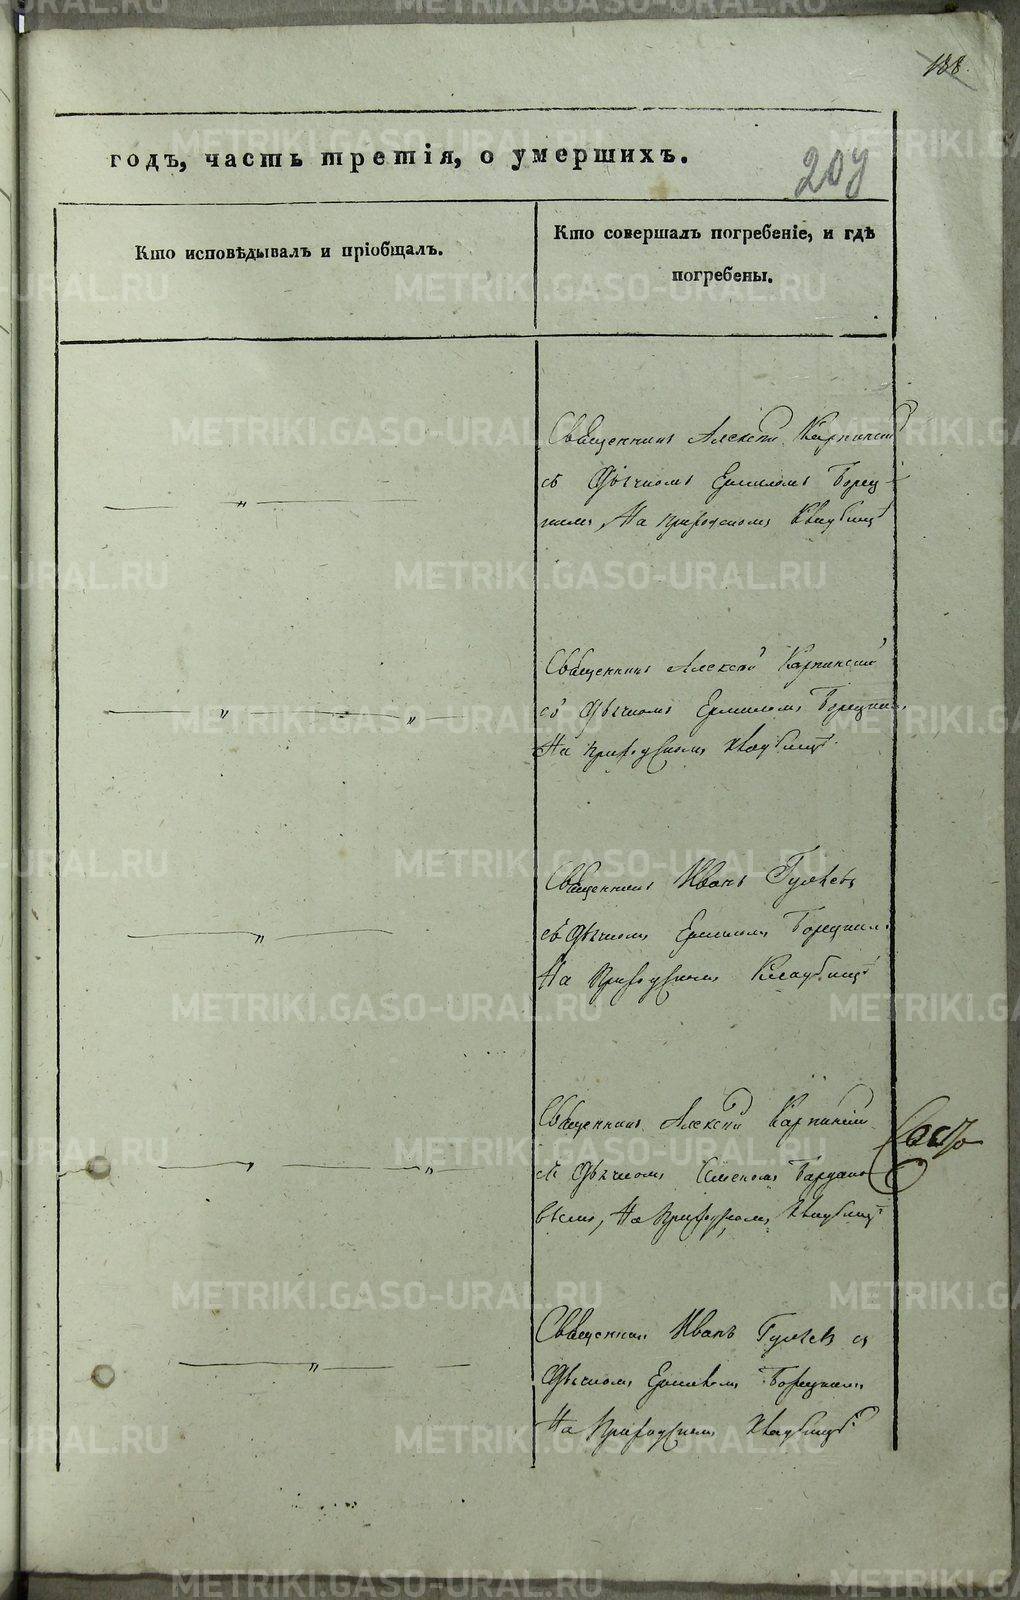 188.
годъ, часть третія, о умершихъ.
209
Кто исповѣдывалъ и пріобщалъ.
Кто совершалъ погребеніе, и гдѣ
погребены.
Священникъ Алексѣй Карпинскій
съ Дьячкомъ Ермиломъ Борец-
кимъ, На приходскомъ Кладбищѣ
Священникъ Алексѣй Карпинскій
съ Дьячкомъ Ермиломъ Борецкимъ
На приходскомъ Кладбищѣ.
Священникъ Иванъ Гуляевъ
съ Дьячкомъ Ермиломъ Борецкимъ
На Приходскомъ Кладбищѣ
Священникъ Алексѣй Карпинскій
съ Дьячкомъ
На Приходскомъ Кладбищѣ
Священникъ Иванъ Гуляевъ съ
Дьячкомъ Ермиломъ Борецкимъ
На Приходскомъ Кладбищѣ
METRIKI.GASO-URAL.RU